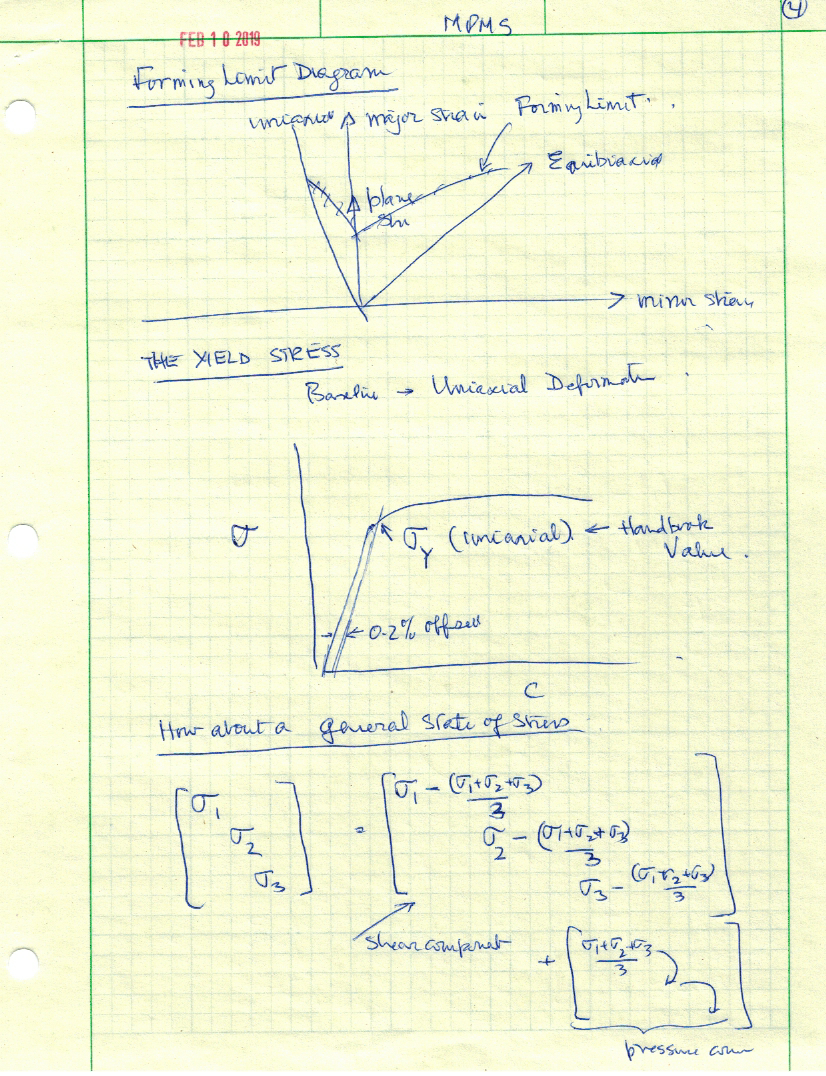 MPMS
4
FEB 10 2019
Forming Limit Diagram
uniaxial major strain Forming Limit.
Equibiaxial
plane
stn
minor strain
THE YIELD STRESS
Baseline → Uniaxial Deformation
σ
σ_Y (uniaxial) ← Handbook
Value.
0.2% offset
How about a general State of Stress
[σ1 σ2 σ3] = [σ1 - (σ1+σ2+σ3)/3
σ2 - (σ1+σ2+σ3)/3
σ3 - (σ1+σ2+σ3)/3]
shear component
+ [(σ1+σ2+σ3)/3]
pressure com